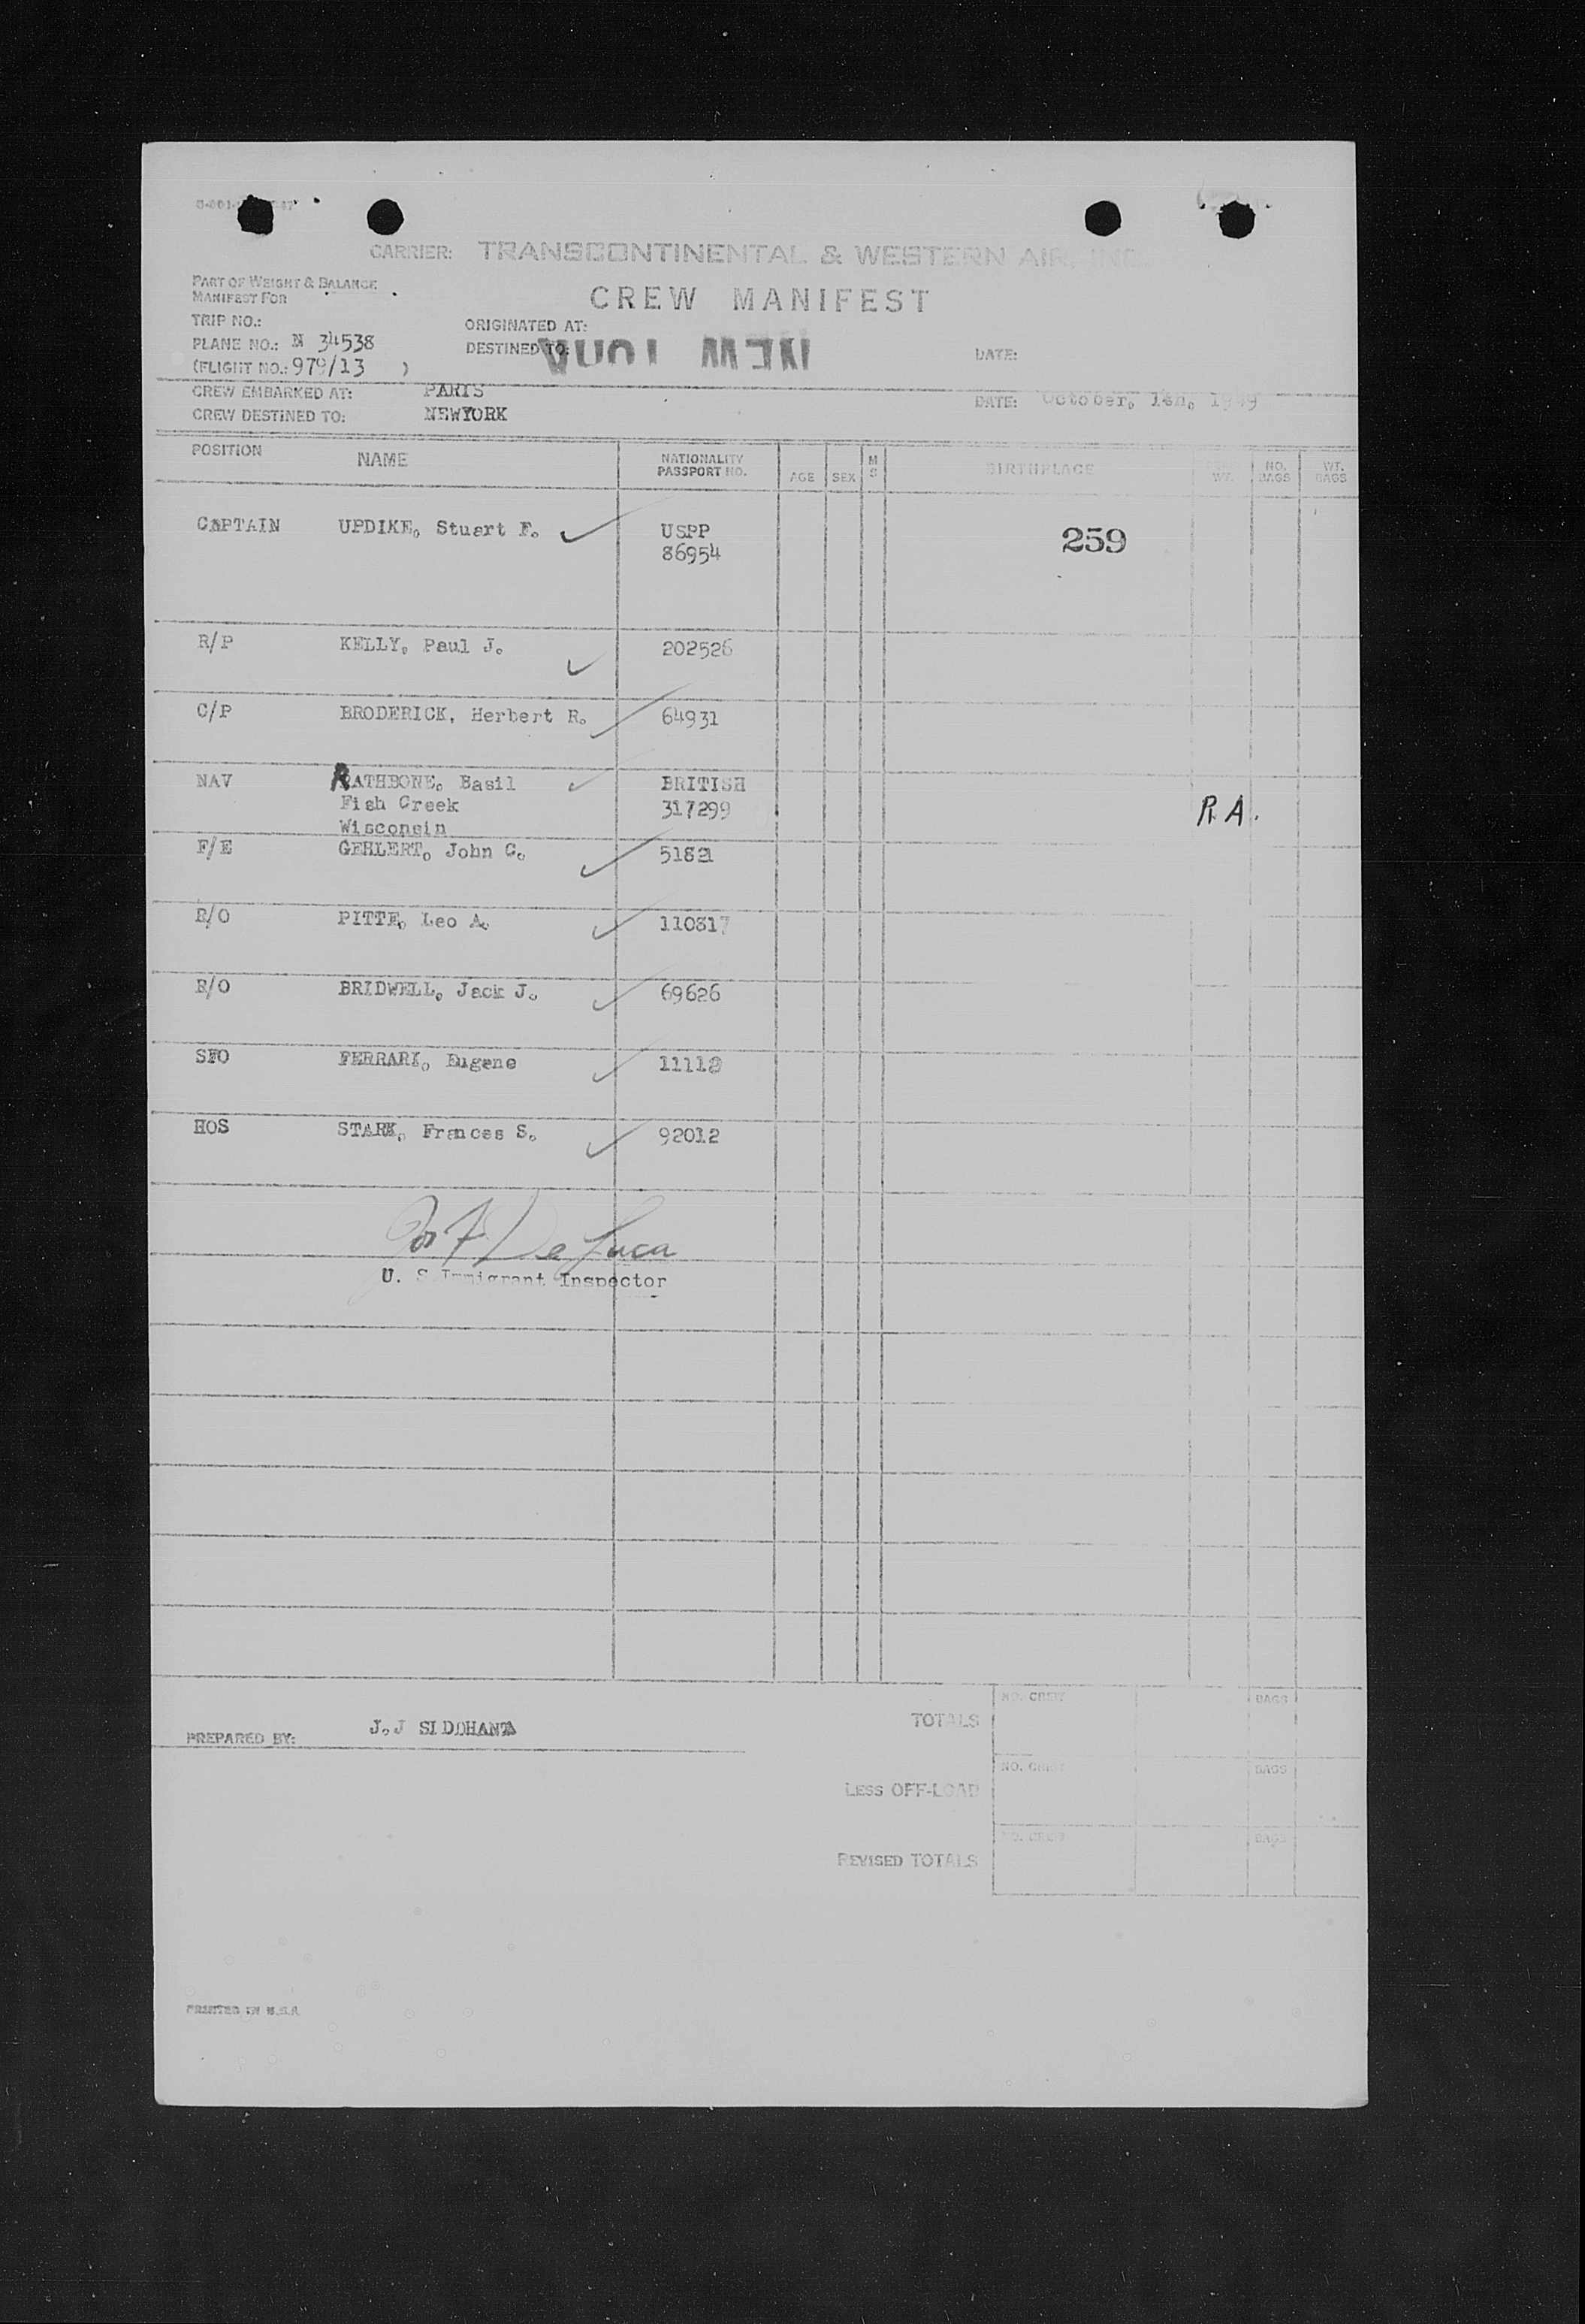 CARRIER: TRANSCONTINENTAL & WESTERN AIR, INC.
PART OF WEIGHT & BALANCE
MANIFEST FOR
CREW MANIFEST
TRIP NO.:
ORIGINATED AT:
PLANE NO.: N 34538
DESTINED TO: NEW YORK
DATE:
(FLIGHT NO.: 979/13 )
CREW EMBARKED AT: PARIS
CREW DESTINED TO: NEWYORK
DATE: October, 1949
POSITION NAME NATIONALITY PASSPORT NO. AGE SEX M S BIRTHPLACE WT. NO. BAGS WT. BAGS
CAPTAIN UPDIKE, Stuart F. USPP 259
86954
R/P KELLY, Paul J. 202526
C/P BRODERICK, Herbert R. 64931
NAV RATHBONE, Basil BRITISH
Fish Creek 317299 R.A.
Wisconsin
F/E GEHLERT, John C.
R/O PITTE, Leo A. 110817
R/O BRIDWELL, Jack J. 69626
SFO FERRARI, Eugene
HOS STARK, Frances S. 92012
Jos F De Luca
U. S Immigrant Inspector
PREPARED BY: J.J SIDDHANTA
TOTALS NO. CREW BAGS
LESS OFF-LOAD NO. CREW BAGS
REVISED TOTALS NO. CREW BAGS
PRINTED IN U.S.A.